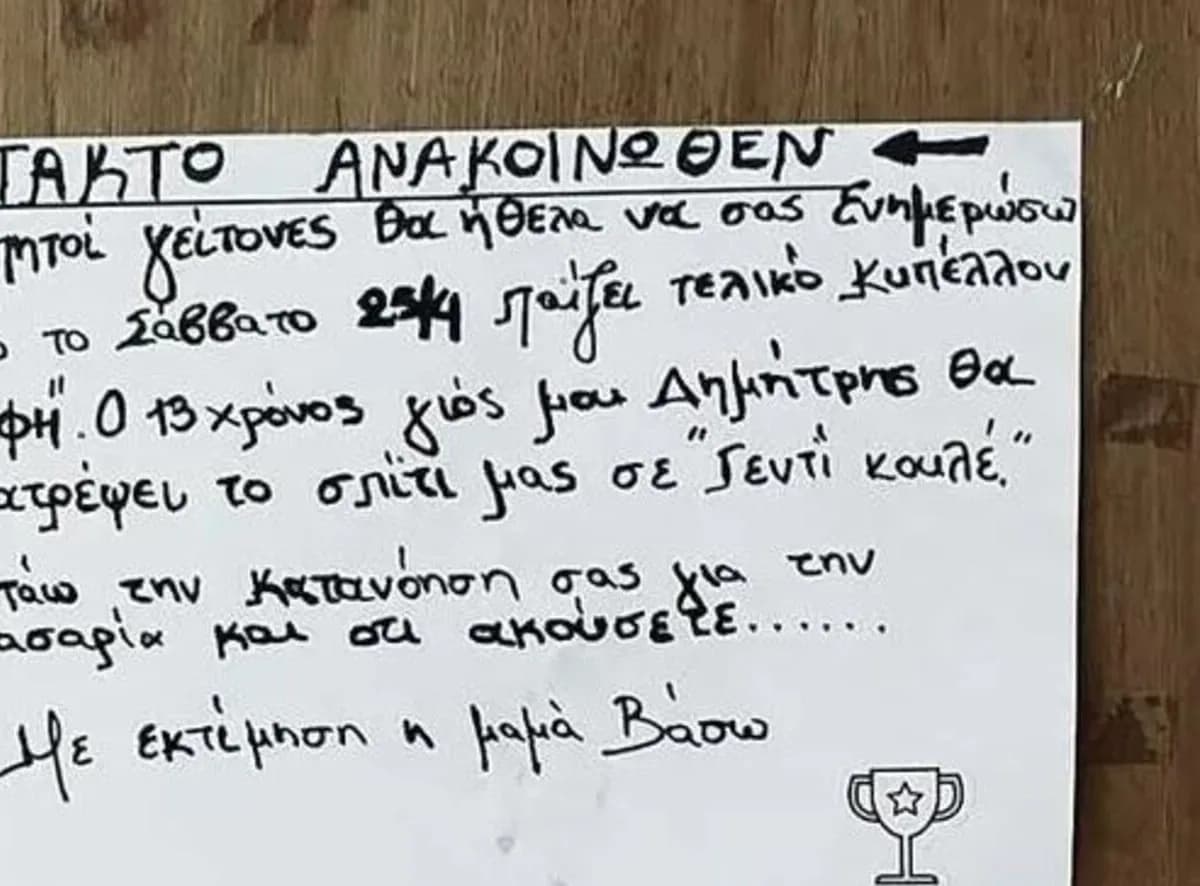 ΤΑΚΤΟ ΑΝΑΚΟΙΝΩΘΕΝ
πητοί γείτονες θα ήθελα να σας ενημερώσω
το Σάββατο 25/4 παίζει τελικό Κυπέλλου
ΦΗ". Ο 13χρόνος γιός μου Δημήτρης θα
ατρέψει το σπίτι μας σε "Γεντί κουλέ."
τάω την κατανόηση σας για την
ασαρία και οτι ακούσετε......
Με εκτίμηση η μαμά Βάσω